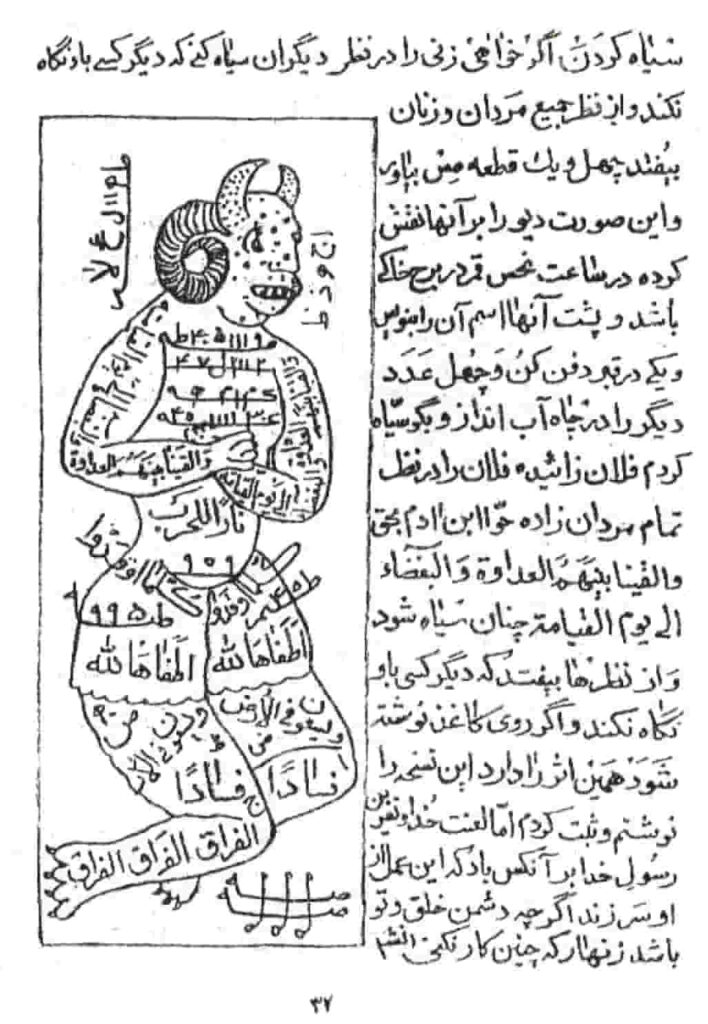 سیاه کردن اگر خواهی زنی را در نظر دیگران سیاه کنے که دیگر کسے باد نگاه
نکند و از نظر جمیع مردان و زنان
بیفتد چهل و یك قطعه مس بیاور
و این صورت دیو را بر آنها نقش
کرده در ساعت نحس قمر در برج خاکے
باشد و پشت آنها اسم آن را بنویس
و یکے در قبر دفن کن و چهل عدد
دیگر را در چاه آب انداز و بگو سیاه
کردم فلان زائیده فلان را در نظر
تمام مردان زاده حوا ابن ادم بحق
والقینا بینهم العداوة والبغضاء
الے یوم القیامة چنان سیاه شود
و از نظرها بیفتد که دیگر کسی باو
نگاه نکند و اگر روی کاغذ نوشته
شود همین اثر را دارد این نسخه را
نوشتم و ثبت کردم اما لعنت خدا و نفرین
رسول خدا بر آنکس باد که این عمل از
او سر زند اگر چه دشمن خلق و تو
باشد زنهار که چنین کار نکنی
والقینا بینهم العداوة
الی یوم القیامة
نارا للحرب
۹۰۹
اطفاها الله
اطفاها الله
ویسعون فی الأرض
فسادا
فسادا
الفراق الفراق الفراق
۳۷